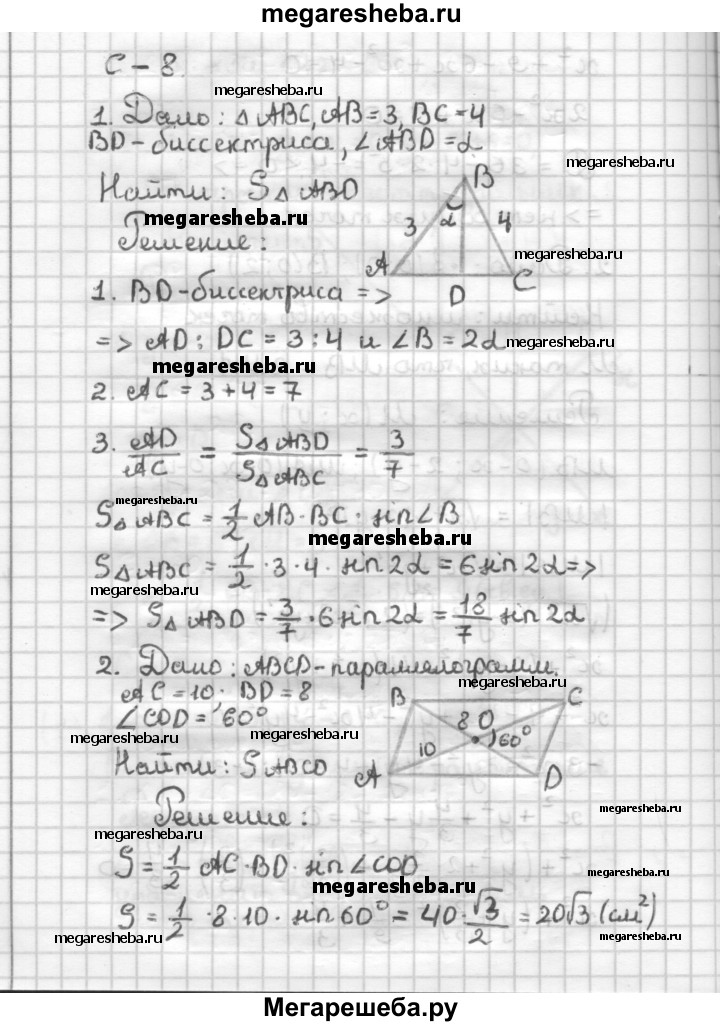 megaresheba.ru
С – 8.
megaresheba.ru
1. Дано: △ ABC, AB = 3, BC = 4
BD – биссектриса, ∠ABD = α
megaresheba.ru
Найти: S△ ABD
megaresheba.ru
Решение:
B
3 α 4
megaresheba.ru
A D C
1. BD – биссектриса =>
=> AD : DC = 3 : 4 и ∠B = 2α
megaresheba.ru
megaresheba.ru
2. AC = 3 + 4 = 7
3. AD/AC = S△ ABD/S△ ABC = 3/7
megaresheba.ru
S△ ABC = 1/2 AB · BC · sin∠B
megaresheba.ru
S△ ABC = 1/2 · 3 · 4 · sin 2α = 6 sin 2α =>
megaresheba.ru
=> S△ ABD = 3/7 · 6 sin 2α = 18/7 sin 2α
2. Дано: ABCD – параллелограмм.
megaresheba.ru
AC = 10 · BD = 8
∠COD = 60°
megaresheba.ru
megaresheba.ru
B C
8 O
10 60°
A D
Найти: S ABCD
Решение:
megaresheba.ru
megaresheba.ru
S = 1/2 AC · BD · sin ∠COD
megaresheba.ru
S = 1/2 · 8 · 10 · sin 60° = 40 · √3/2 = 20√3 (см²)
megaresheba.ru
megaresheba.ru
Мегарешеба.ру